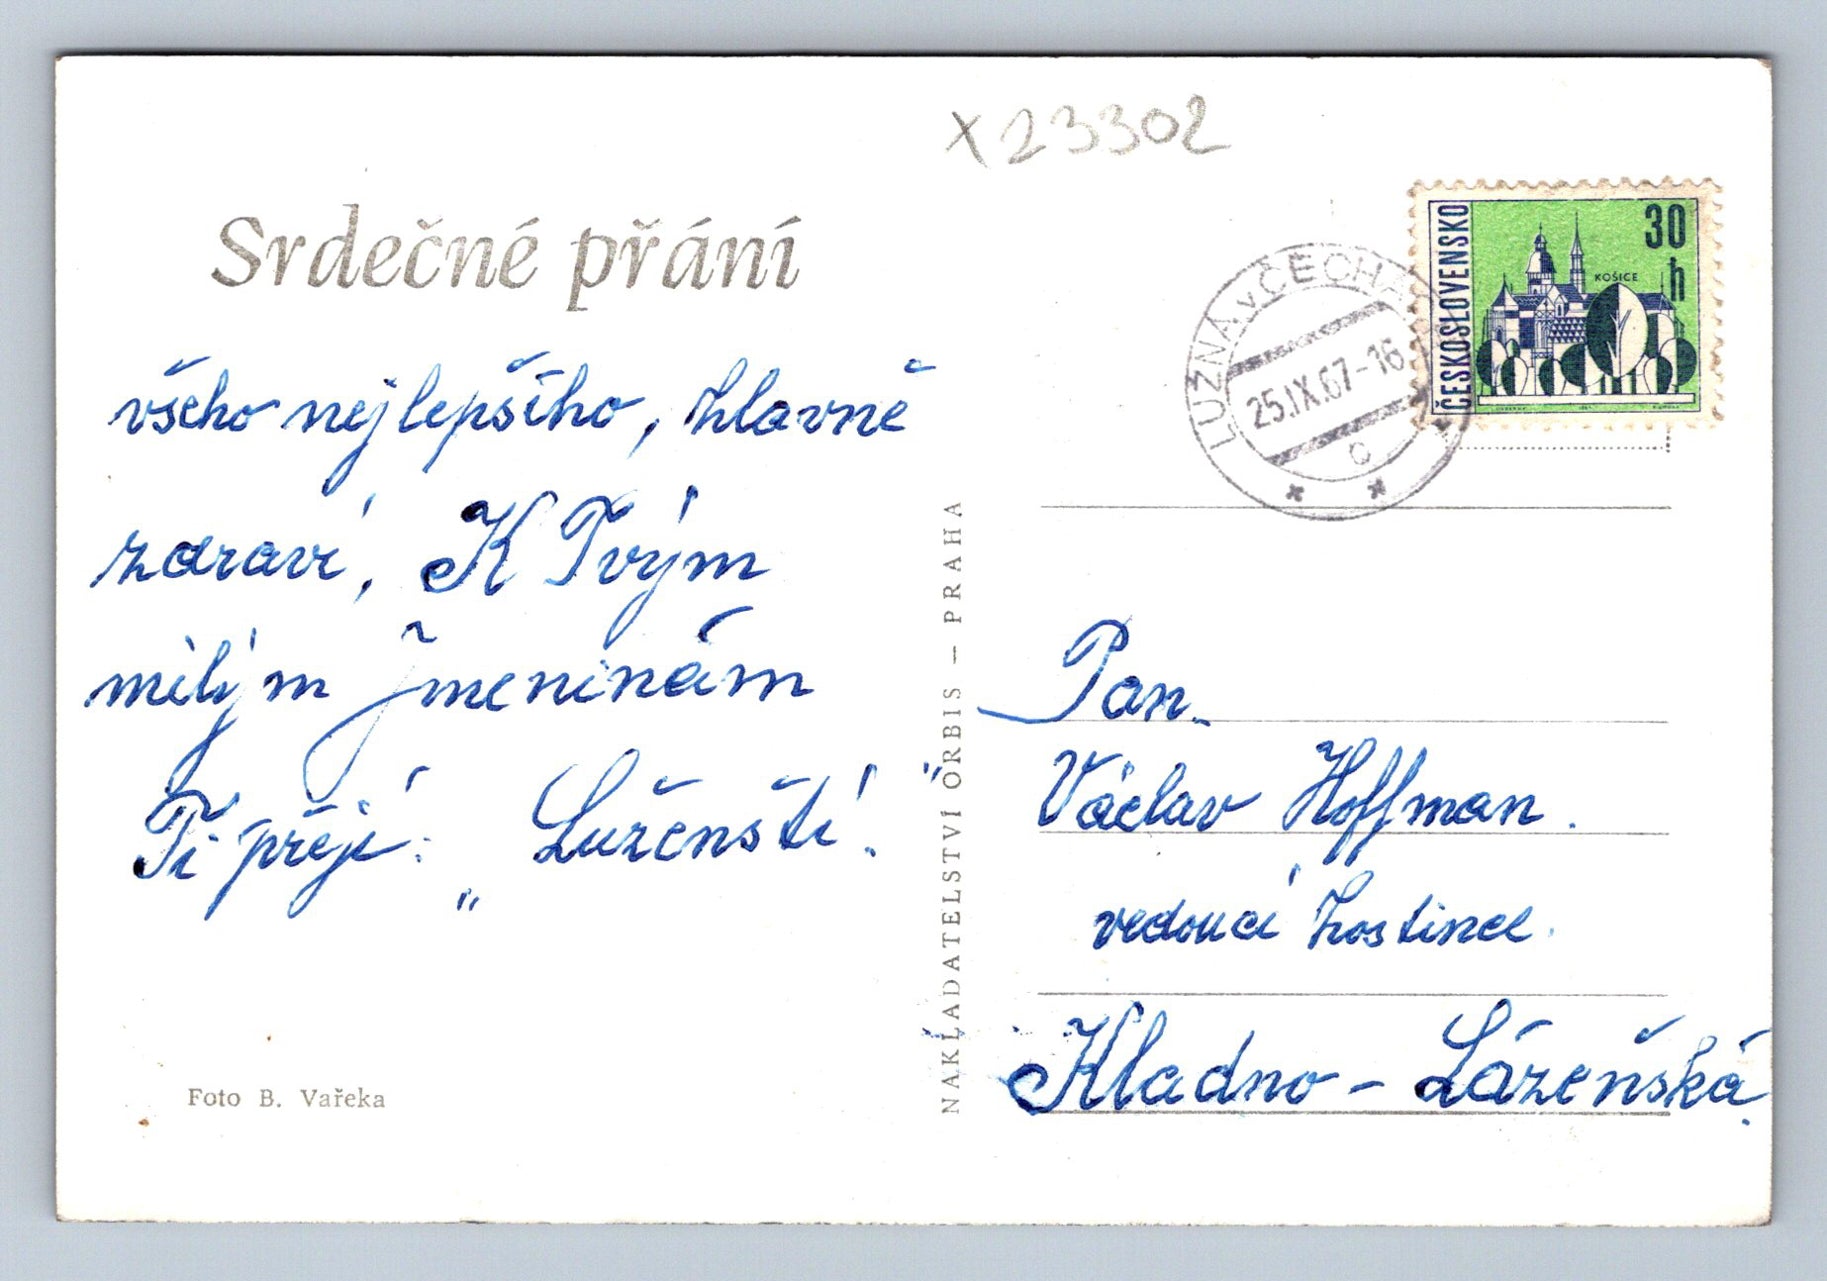 x23302
Srdečné přání
všeho nejlepšího, hlavně
zdraví, K Tvým
milým jmeninám
Ti přejí: „Luženští."
Foto B. Vařeka
NAKLADATELSTVÍ ORBIS – PRAHA
LUŽNÁ v ČECHÁCH
25.IX.67-16
c
ČESKOSLOVENSKO
30 h
KOŠICE
Pan.
Václav Hoffman.
vedoucí hostince.
Kladno - Lázeňská.